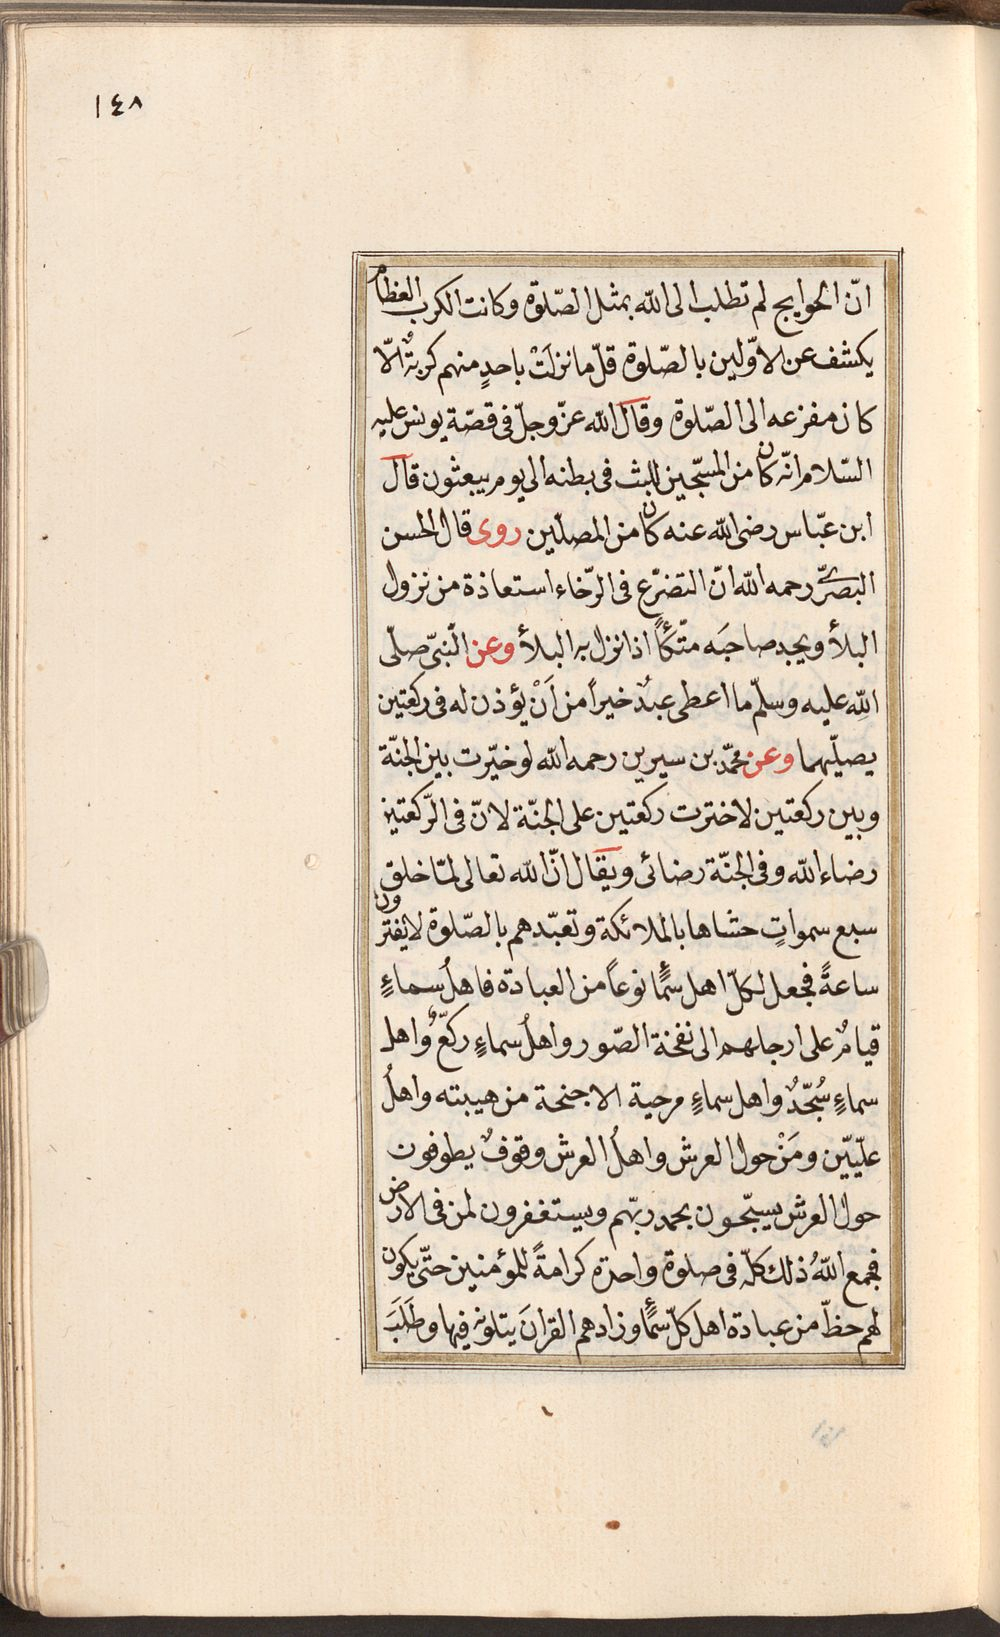 ١٤٨
انّ الحوايج لم تطلب الى الله بمثل الصّلوة وكانت الكرب العظام
يكشف عن الاوّلين بالصّلوة قلّ ما نزلَتْ باحدٍ منهم كربةٌ الّا
كان مفزعه الى الصّلوة وقال الله عزّ وجلّ فى قصّة يونس عليه
السّلام انّه كان من المسبّحين للبث فى بطنه الى يوم يبعثون قال
ابن عبّاس رضى الله عنه كان من المصلّين روى قال الحسن
البصرىّ رحمه الله انّ التضرّع فى الرّخاء استعاذة من نزول
البلأ ويجد صاحبَه متّكأً اذا نزل به البلأ وعن النّبىّ صلّى
اللهِ عليه وسلّم ما اعطى عبدٌ خيراً من اَنْ يؤذن له فى ركعتين
يصلّيهما وعن محمّد بن سيرين رحمه الله لو خيّرت بين الجنّة
وبين ركعتين لاخترت ركعتين على الجنّة لانّ فى الرّكعتين
رضاء الله وفى الجنّة رضائى ويقال انّ الله تعالى لمّا خلق
سبع سمواتٍ حشاها بالملائكة وتعبّدهم بالصّلوة لا يفترون
ساعةً فجعل لكلّ اهل سمأٍ نوعاً من العبادة فاهلُ سماءٍ
قيامٌ على ارجلهم الى نفخة الصّور واهلُ سماءٍ ركعٌّ واهل
سماءٍ سُجّدٌ واهل سماءٍ مرخية الاجنحة من هيبته واهلُ
علّييّن ومَنْ حول العرش واهلُ العرش وقوفٌ يطوفون
حول العرش يسبّحون بحمد ربّهم ويستغفرون لمن فى الارض
فجمع اللهُ ذلك كلّه فى صلوة واحدة كرامةً للمؤمنين حتّى يكون
لهم حظّ من عبادة اهل كلّ سمأٍ وزادهم القرانَ يتلونه فيها وطَلَبَ